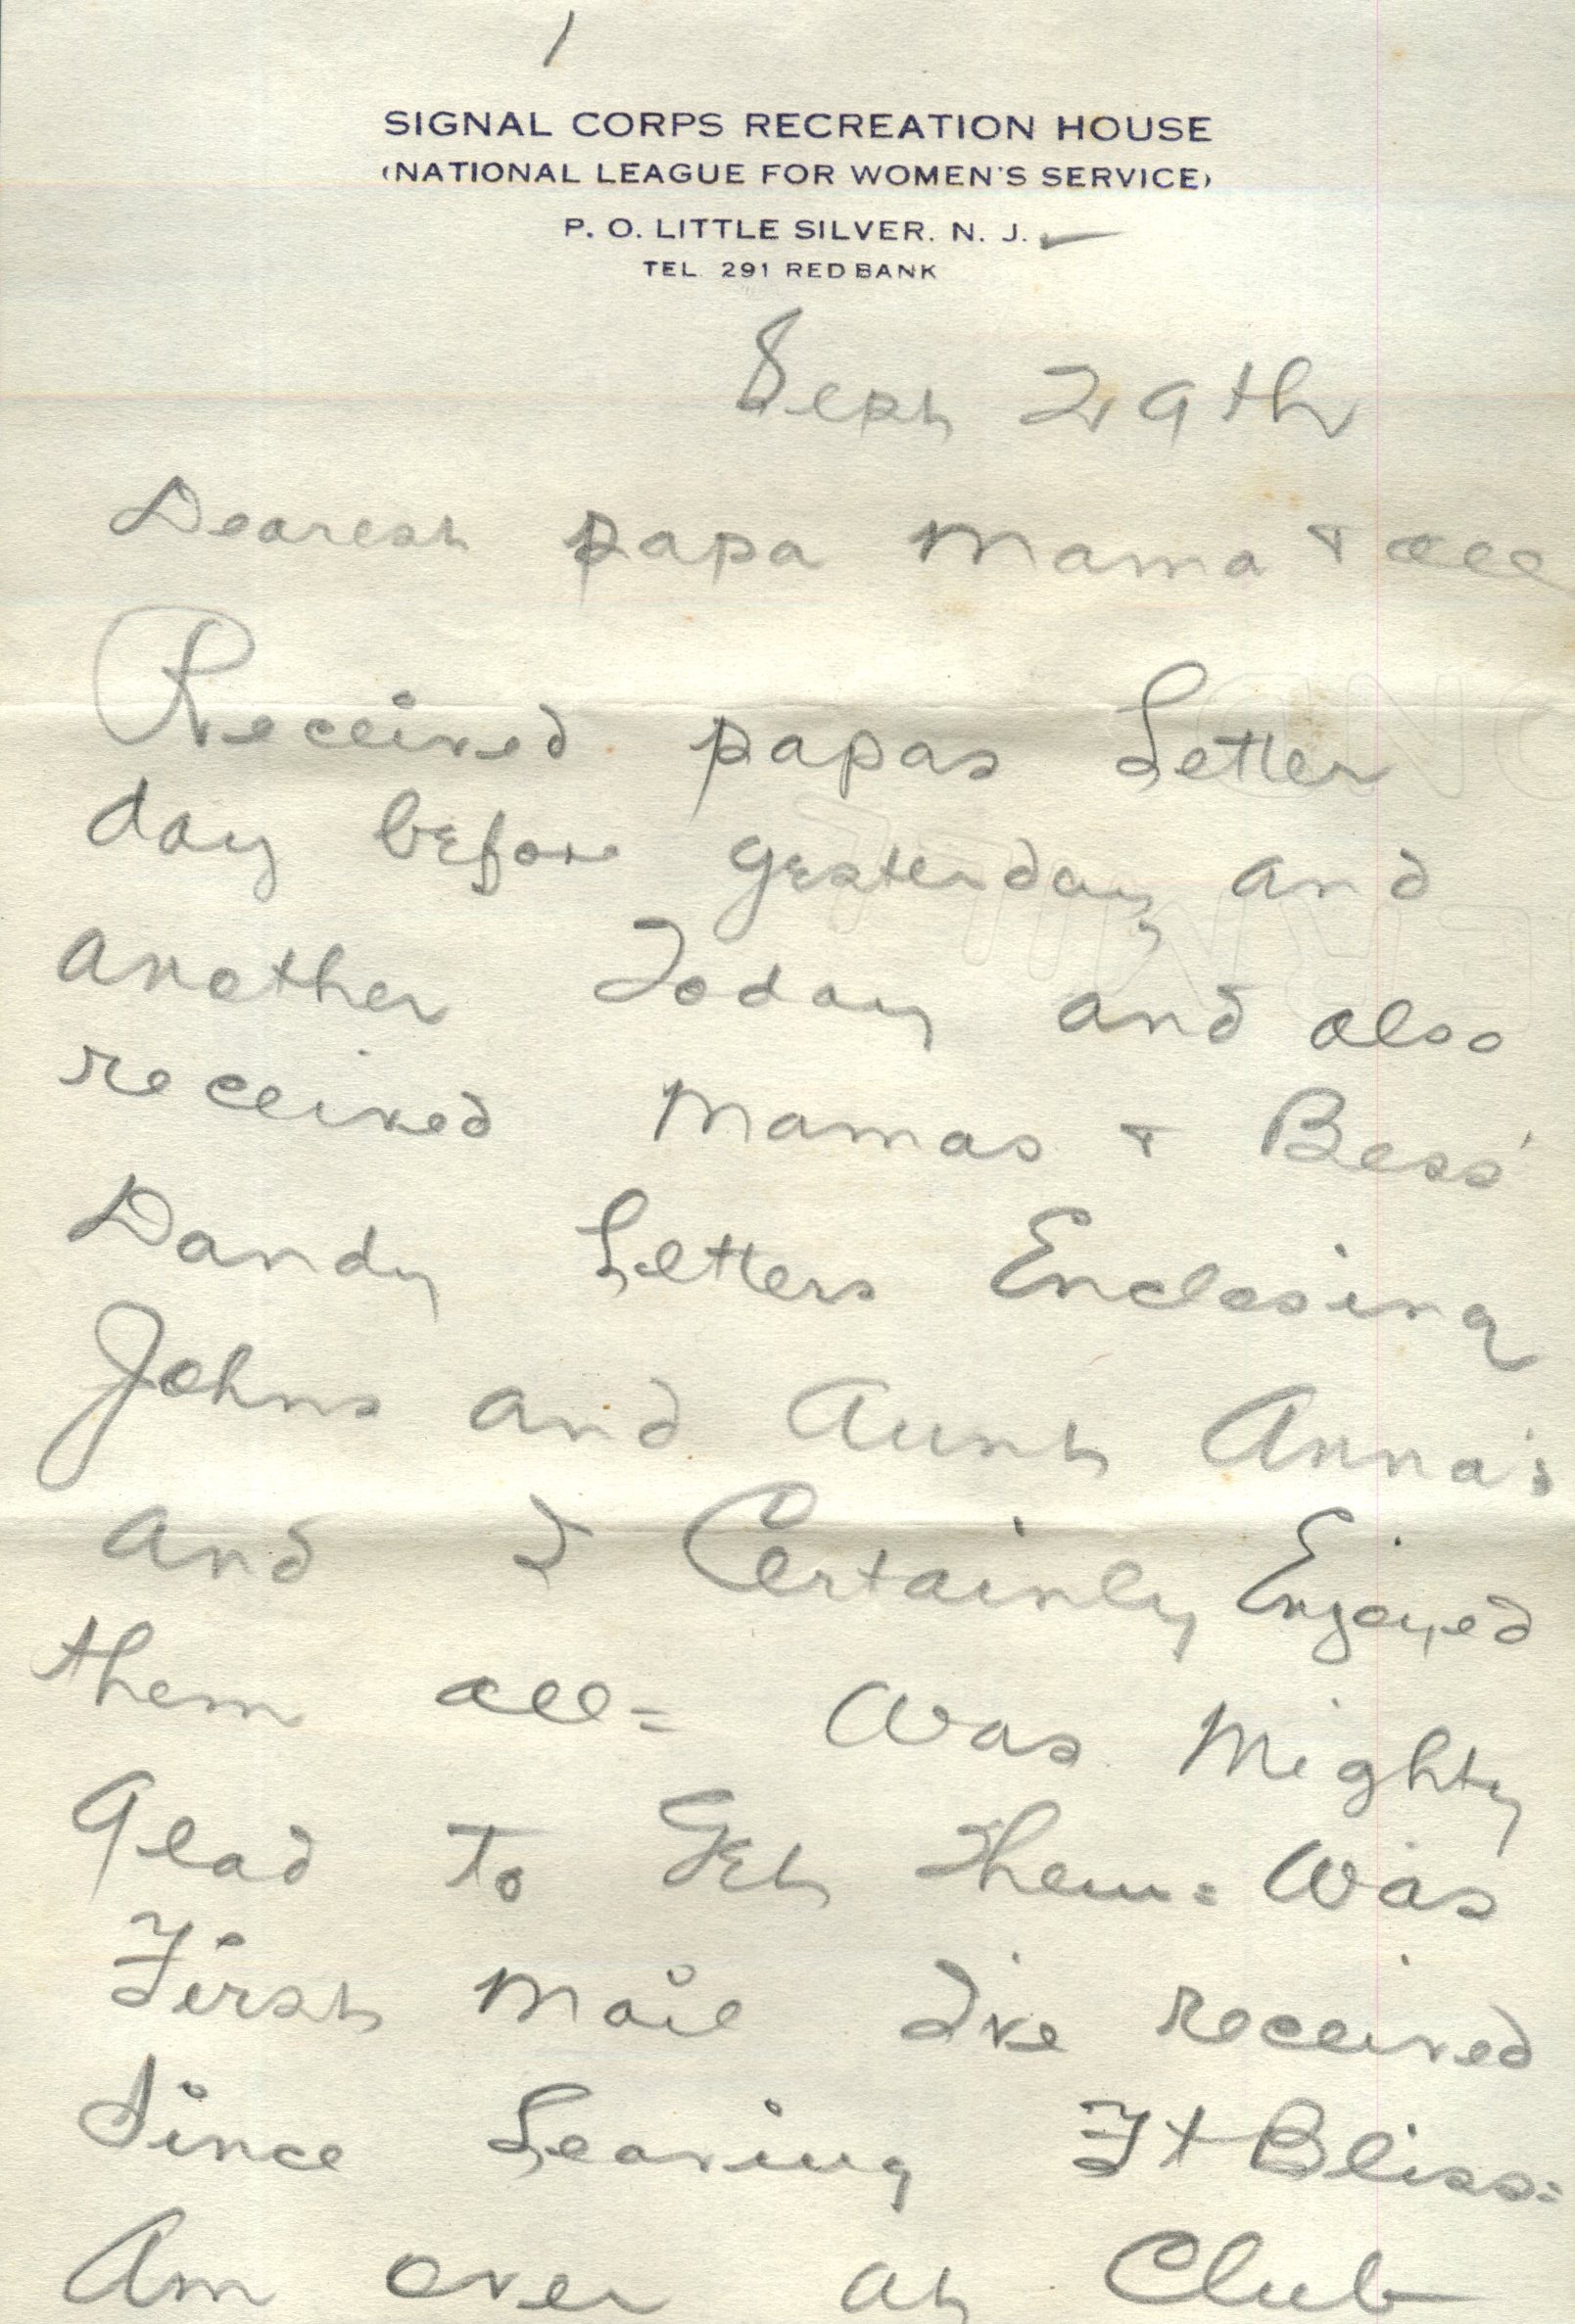 1
SIGNAL CORPS RECREATION HOUSE
(NATIONAL LEAGUE FOR WOMEN'S SERVICE)
P. O. LITTLE SILVER. N. J.
TEL. 291 RED BANK
Sept 29th
Dearest papa mama + all
Received papas Letter
day before yesterday and
another Today and also
received Mamas + Bess'
Dandy Letters Enclosing
Johns and Aunt Anna's
and I Certainly Enjoyed
them all = Was Mighty
Glad to Get Them = Was
First mail I've received
Since Leaving Ft Bliss =
Am over at Club